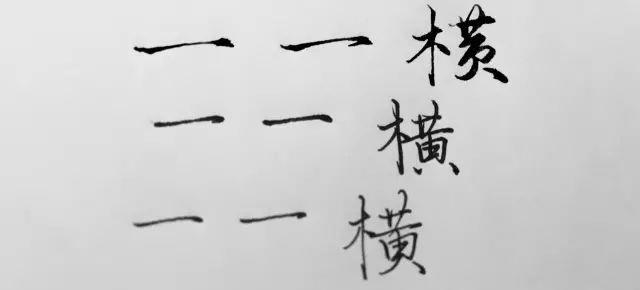 一 一 横
一 一 横
一 一 横